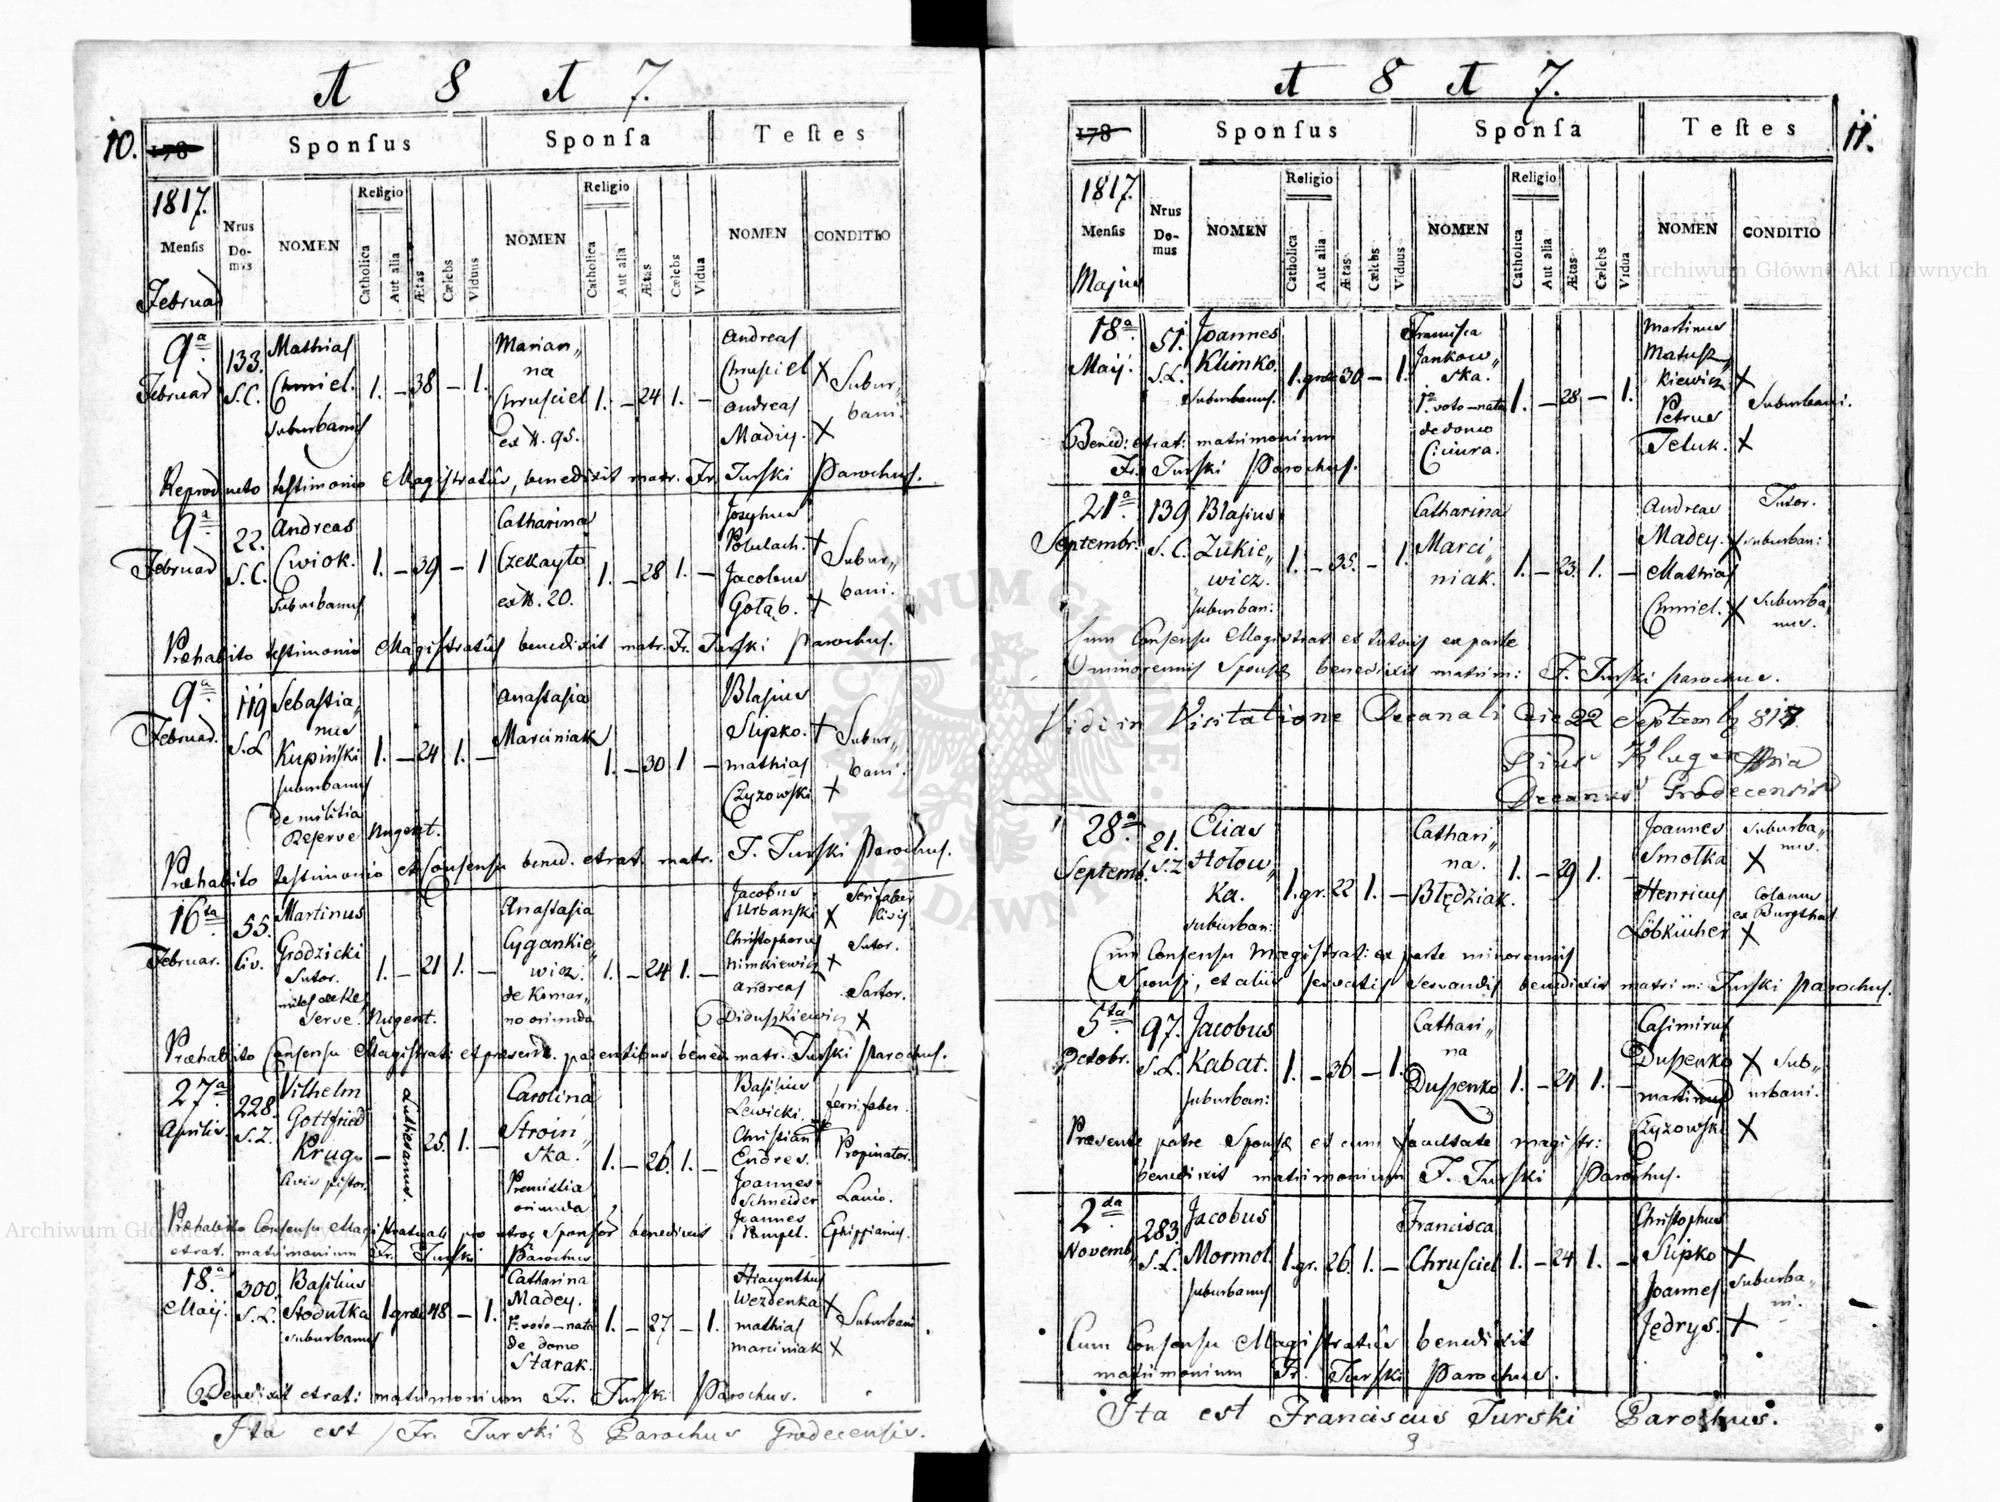 1 8 1 7.
10.
178
Sponſus
Sponſa
Teſtes
1817.
Menſis
Februar
Nrus Do-mus
NOMEN
Religio
Catholica
Aut alia
Ætas
Cælebs
Viduus
NOMEN
Religio
Catholica
Aut alia
Ætas
Cælebs
Vidua
NOMEN
CONDITIO
9a Februar
133. S.L.
Mathias
Chmiel.
suburbanus
1. – 38 – 1.
Marian„
na
Chrusciel
ex N. 95.
1. – 24 1. –
Andreas
Chrusciel X
Andreas
Madey. X
Subur„
bani.
Reproducto testimonio Magistratûs, benedixit matr. Fr. Turski Parochus.
9a Februar
22. S.L.
Andreas
Cwiok.
Suburbanus
1. – 39 – 1
Catharina
Czekayło
ex N. 20.
1. – 28 1. –
Josephus
Potulach. +
Jacobus
Gołąb. +
Subur„
bani.
Præhabito testimonio Magistratûs benedixit matr. Fr. Turski Parochus.
9a Februar.
119 S.L.
Sebastia„
nus
Kupiński
suburbanus
de militia
Reserve Nugent.
1. – 24 1. –
Anastasia
Marciniak
1. – 30 1 –
Blasius
Slipko. +
Mathias
Czyzowski +
Subur„
bani.
Præhabito testimonio et Consensu bened. et rat. matr. F. Turski Parochus.
16ta Februar.
55. Civ.
Martinus
Grodzicki
Sutor.
miles de Re
serve. Nugent.
1. – 21 1. –
Anastasia
Cygankie„
wicz.
de Komar„
no oriunda
1. – 24 1. –
Jacobus
Urbanski X
Christophorus
Nimkiewicz +
Andreas
Diduszkiewicz X
Serifaber
Civis
Sutor.
Sartor.
Præhabito Consensu Magistrati et præsent. parentibus bened. matr. Turski Parochus.
27a Aprilis.
228. S.L.
Vilhelm
Gottfried
Krug.
Civis pistor.
– Lutheranus. 25. 1. –
Carolina
Stroiń„
ska.
Premislia
oriunda
1. – 26. 1. –
Basilius
Lewicki.
Christian
Endres.
Joannes
Schneider
Joannes
Pampel.
ferrifaber.
Propinator.
Lanio.
Ephippiarius.
Præhabito Consensu Magistratuali pro utroq Sponsor benedixit
et rat. matrimonium Fr. Turski Parochus
18a Maij.
300. S.L.
Basilius
Stodułka
suburbanus
1. græ 48 – 1.
Catharina
Madey.
1o voto – nata
de domo
Starak.
1. – 27 – 1.
Hiacynthus
Wezdenka X
Mathias
Marciniak X
Suburbani.
Benedixit et rat: matrimonium Fr. Turski Parochus.
Ita est Fr. Turski Parochus Grodecensis.
1 8 1 7.
11.
178
Sponſus
Sponſa
Teſtes
1817.
Menſis
Majus
Nrus Do-mus
NOMEN
Religio
Catholica
Aut alia
Ætas
Cælebs
Viduus
NOMEN
Religio
Catholica
Aut alia
Ætas
Cælebs
Vidua
NOMEN
CONDITIO
18a Maij.
51. S.L.
Joannes
Klimko.
suburbanus.
1. græ 30 – 1.
Francisca
Jankow„
ska.
1o voto – nata
de domo
Ciciura.
1. – 28 – 1.
Martinus
Matusz„
kiewicz X
Petrus
Teluk. X
Suburbani.
Bened: et rat: matrimonium
Fr. Turski Parochus.
21a Septembr.
139 S.L.
Blasius
Zukie„
wicz.
suburban:
1. – 35. – 1.
Catharina
Marci„
niak.
1. – 23. 1. –
Andreas
Madey. X
Mathias
Chmiel. X
Tutor.
suburban:
suburba„
nus.
Cum Consensu Magistrat et tutoris ex parte
minorennis Sponsæ benedixit matrim: F. Turski parochus.
Vidi in Visitatione Decanali Die 22 Septembr 817.
Decanus Grodecensis
28a Septemb.
21. S.L.
Elias
Hołow„
ka.
suburban:
1. gr. 22 1. –
Cathari„
na.
Błędziak.
1. – 29 1. –
Joannes
Smolka X
Henricus
Löbkücher X
suburba„
nus.
Colonus
ex Burgthal
Cum Consensu Magistrat: ex parte minorennis
Sponsi, et aliis servatis servandis benedixit matrim: Turski Parochus.
5ta Octobr.
97. S.L.
Jacobus
Kabat.
suburban:
1. – 36 – 1.
Cathari„
na
Duszenko
1. – 24 1. –
Casimirus
Duszenko X
Martinus
Czyzowski X
Sub„
urbani.
Præsente patre Sponsæ et cum facultate magistr:
benedixit matrimonium F. Turski Parochus.
2da Novemb.
283. S.L.
Jacobus
Mormol
suburbanus
1. gr. 26. 1. –
Francisca
Chrusciel
1. – 24 1. –
Christophus
Slipko X
Joannes
Jędrys. X
Suburba„
ni.
Cum Consensu Magistratûs benedixit
matrimonium Fr. Turski Parochus.
Ita est Franciscus Turski Parochus.
9
Archiwum Główne Akt Dawnych
Archiwum Główne Akt Dawnych
ARCHIWUM GŁÓWNE AKT DAWNYCH